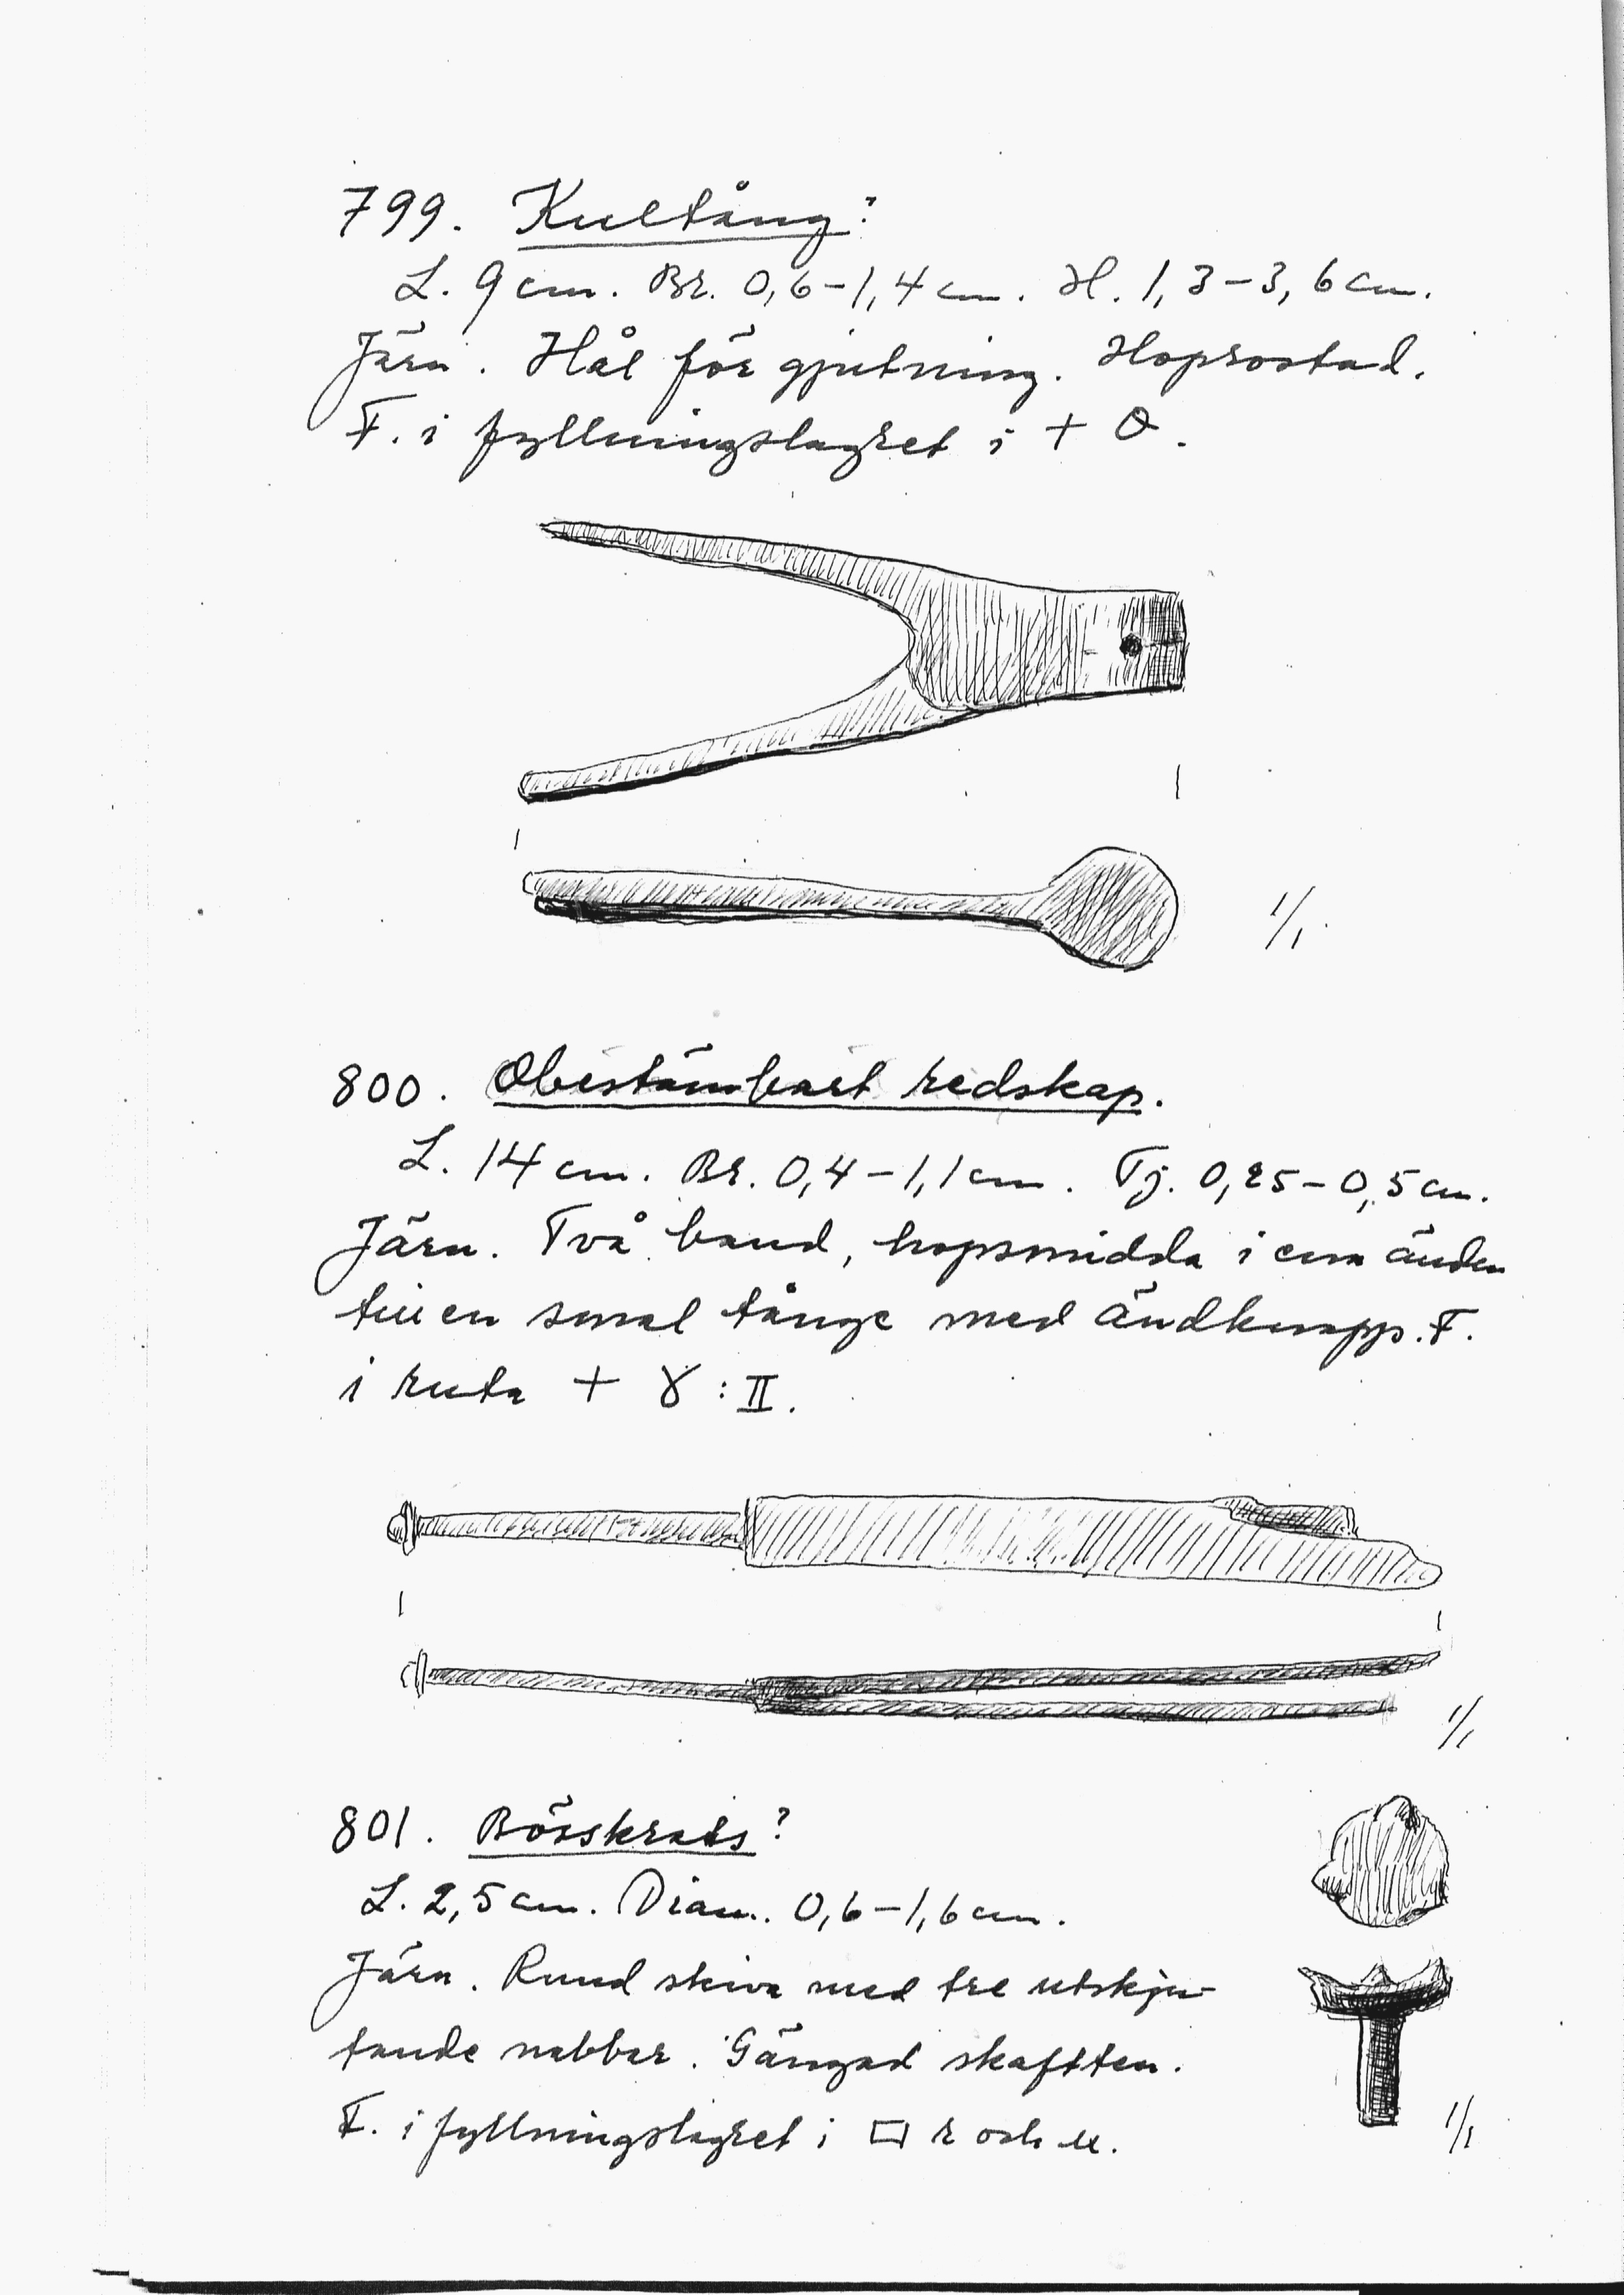 799. Kultång?
L. 9 cm. Br. 0,6–1,4 cm. H. 1,3–3,6 cm.
Järn. Hål för gjutning. Hoprostad.
F. i fyllningslagret i + Q.
1/1.
800. Obestämbart redskap.
L. 14 cm. Br. 0,4–1,1 cm. Tj. 0,25–0,5 cm.
Järn. Två band, hopsmidda i ena änden
till en smal tånge med ändknapp. F.
i ruta + γ : II.
1/1
801. Bösskrats?
L. 2,5 cm. Diam. 0,6–1,6 cm.
Järn. Rund skiva med tre utskju-
tande nabbar. Gängad skaftten.
F. i fyllningslagret i □ r och u.
1/1